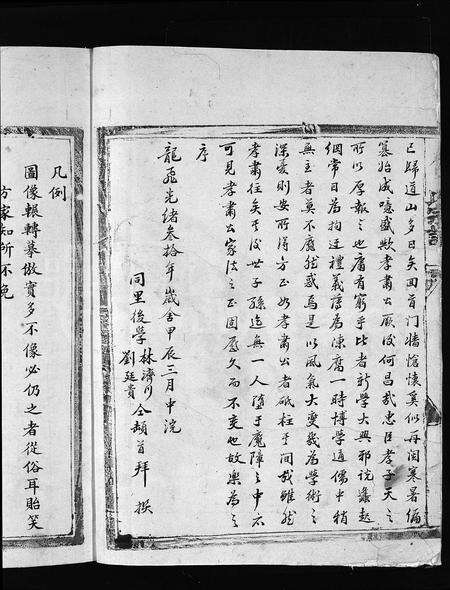 已歸道山多日矣回首門牆愴懷莫似毋閱寒暑編
纂始成噫盛歟孝肅公厥後何昌哉忠臣孝子天之
所以厚報之也庸有窮乎比者新學大興邪說蠭起
綱常目為拘迂禮義詆為陳腐一時博學通儒中稍
無主者莫不靡然惑焉是以風氣大變幾為學術之
深憂則安所得方正如孝肅公者砥柱其間哉雖然
孝肅往矣其後世子孫迄無一人墮于魔障之中亦
可見孝肅公家法之正固歷久而不變也故樂為之
序
龍飛光緒叁拾年歲舍甲辰三月中浣
同里後學林濟川劉廷貴仝頓首拜 撰
凡例
圖像輾轉摹倣實多不像必仍之者從俗耳貽笑
方家知所不免